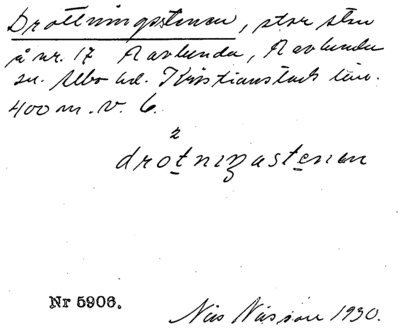 Drottningastenen, stor sten
å nr. 17 Ravlunda, Ravlunda
sn. Albo hd. Kristianstads län.
400 m. V. 6.
2
drotniŋastenən
Nr 5906.
Nils Nilsson 1930.